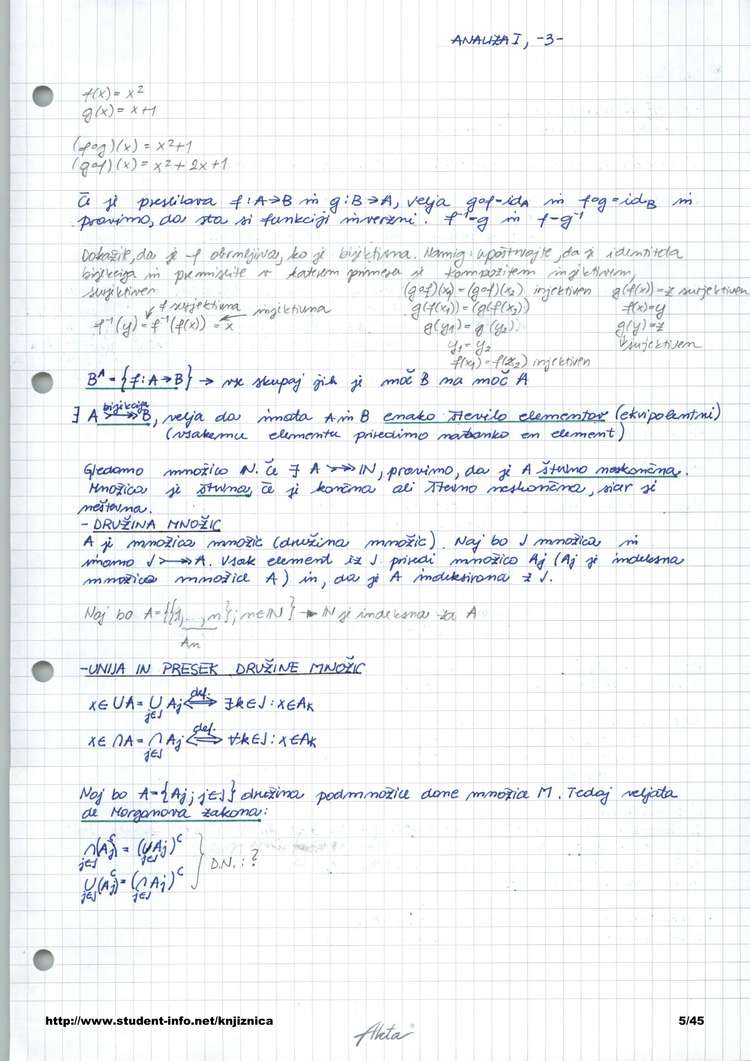 ANALIZA I, -3-
f(x) = x²
g(x) = x+1
(f∘g)(x) = x²+1
(g∘f)(x) = x²+2x+1
Če je preslikava f: A→B in g: B→A, velja g∘f = id_A in f∘g = id_B in
pravimo, da sta si funkciji inverzni. f⁻¹=g in f=g⁻¹
Dokažite, da je f obrnljiva, ko je bijektivna. Namig: upoštevajte, da je identiteta
bijekcija in premislite v katerem primeru je kompozitem injektiven,
surjektiven
(g∘f)(x₁) = (g∘f)(x₂) injektiven g(f(x)) = z surjektiven
f surjektivna
f⁻¹(y) = f⁻¹(f(x)) = x injektivna
g(f(x₁)) = (g(f(x₂)) f(x)=y
g(y₁) = g(y₂) g(y)=z
y₁ = y₂ surjektiven
f(x₁) = f(x₂) injektiven
Bᴬ = {f: A→B} → vse skupaj jih je moč B na moč A
bijekcija
∃ A ↣↠ B, velja da imata A in B enako število elementov (ekvipolentni)
(vsakemu elementu priredimo natanko en element)
Gledamo množico ℕ. Če ∃ A ↣↠ ℕ, pravimo, da je A števno neskončna.
Množica je števna, če je končna ali števno neskončna, sicer je
neštevna.
- DRUŽINA MNOŽIC
A je množica množic (družina množic). Naj bo J množica in
imamo J ↣↠ A. Vsak element iz J priredi množico Aj (Aj je indeksna
množica množice A) in, da je A indeksirana z J.
Naj bo A = {{1,...,n}; n∈ℕ} → ℕ je indeksna za A
An
-UNIJA IN PRESEK DRUŽINE MNOŽIC
x∈∪A = ∪_{j∈J} Aj ⟺ def. ∃k∈J: x∈A_k
x∈∩A = ∩_{j∈J} Aj ⟺ def. ∀k∈J: x∈A_k
Naj bo A={Aj; j∈J} družina podmnožice dane množice M. Tedaj veljata
de Morganova zakona:
∩_{j∈J}(Aj)ᶜ = (∪_{j∈J} Aj)ᶜ
D.N.: ?
∪_{j∈J}(Aj)ᶜ = (∩_{j∈J} Aj)ᶜ
http://www.student-info.net/knjiznica 5/45
Akta